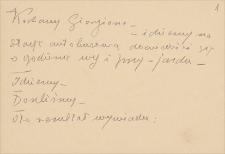 1
Kochany Giorgione –
– idziemy na
stację autobusową dowiedzieć się
o godzinę wyj i przy-jazdu –
Idziemy –
Doszliśmy –
Oto rezultat wywiadu: